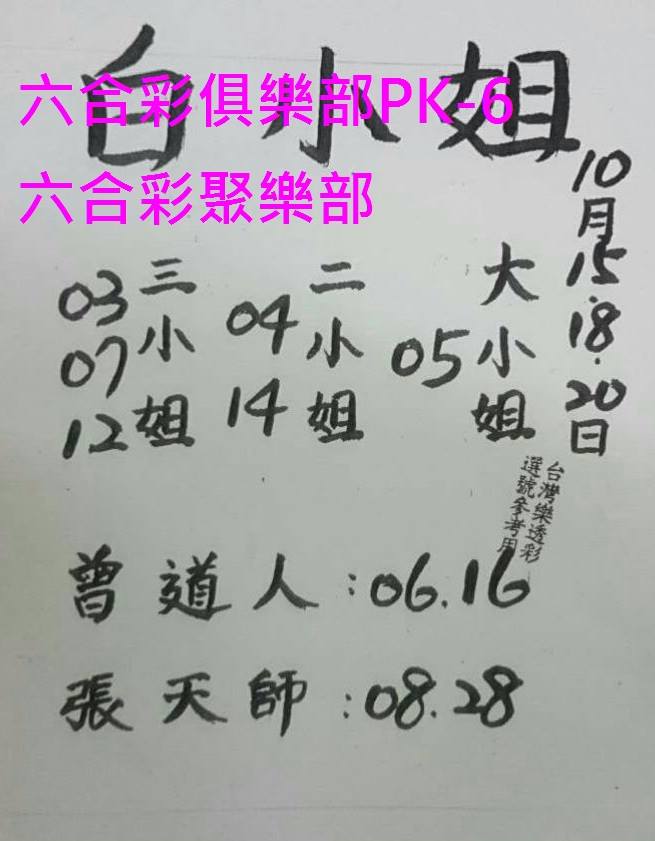 白小姐
六合彩俱樂部PK-6
六合彩聚樂部
10月15.18.20日
大小姐
05
二小姐
04
14
三小姐
03
07
12
台灣樂透彩
選號參考用
曾道人:06.16
張天師:08.28